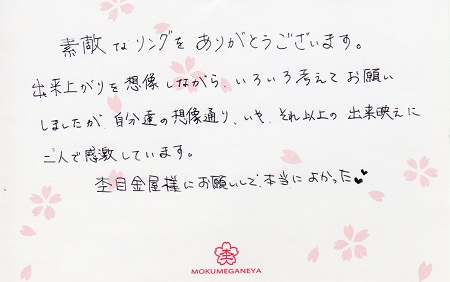 素敵なリングをありがとうございます。
出来上がりを想像しながら、いろいろ考えてお願い
しましたが、自分達の想像通り、いや、それ以上の出来映えに
二人で感激しています。
杢目金屋様にお願いして、本当によかった
杢
MOKUMEGANEYA